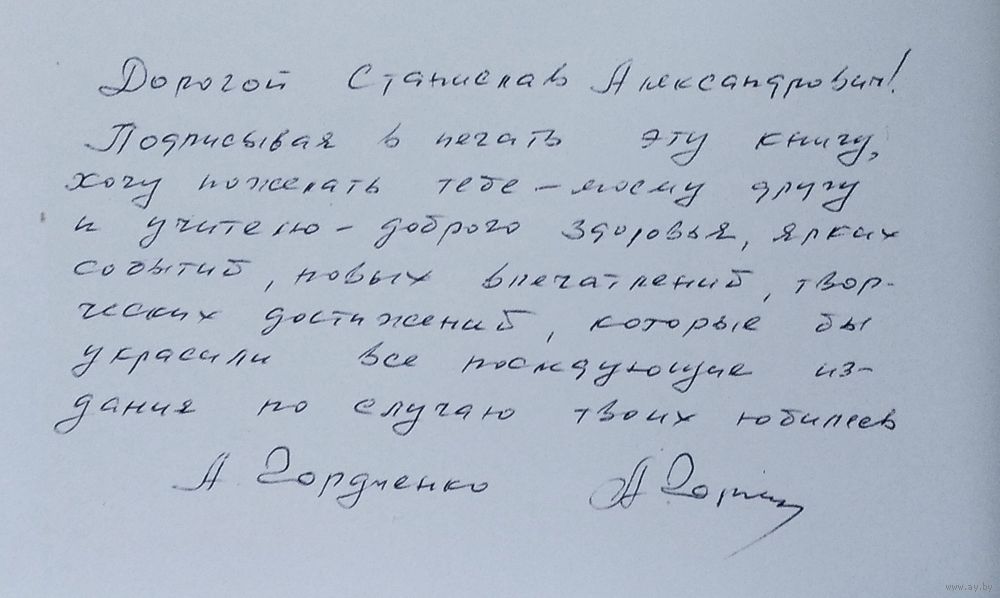 Дорогой Станислав Александрович!
Подписывая в печать эту книгу,
хочу пожелать тебе – моему другу
и учителю – доброго здоровья, ярких
событий, новых впечатлений, твор-
ческих достижений, которые бы
украсили все последующие из-
дания по случаю твоих юбилеев
А. Гордиенко
www.ay.by